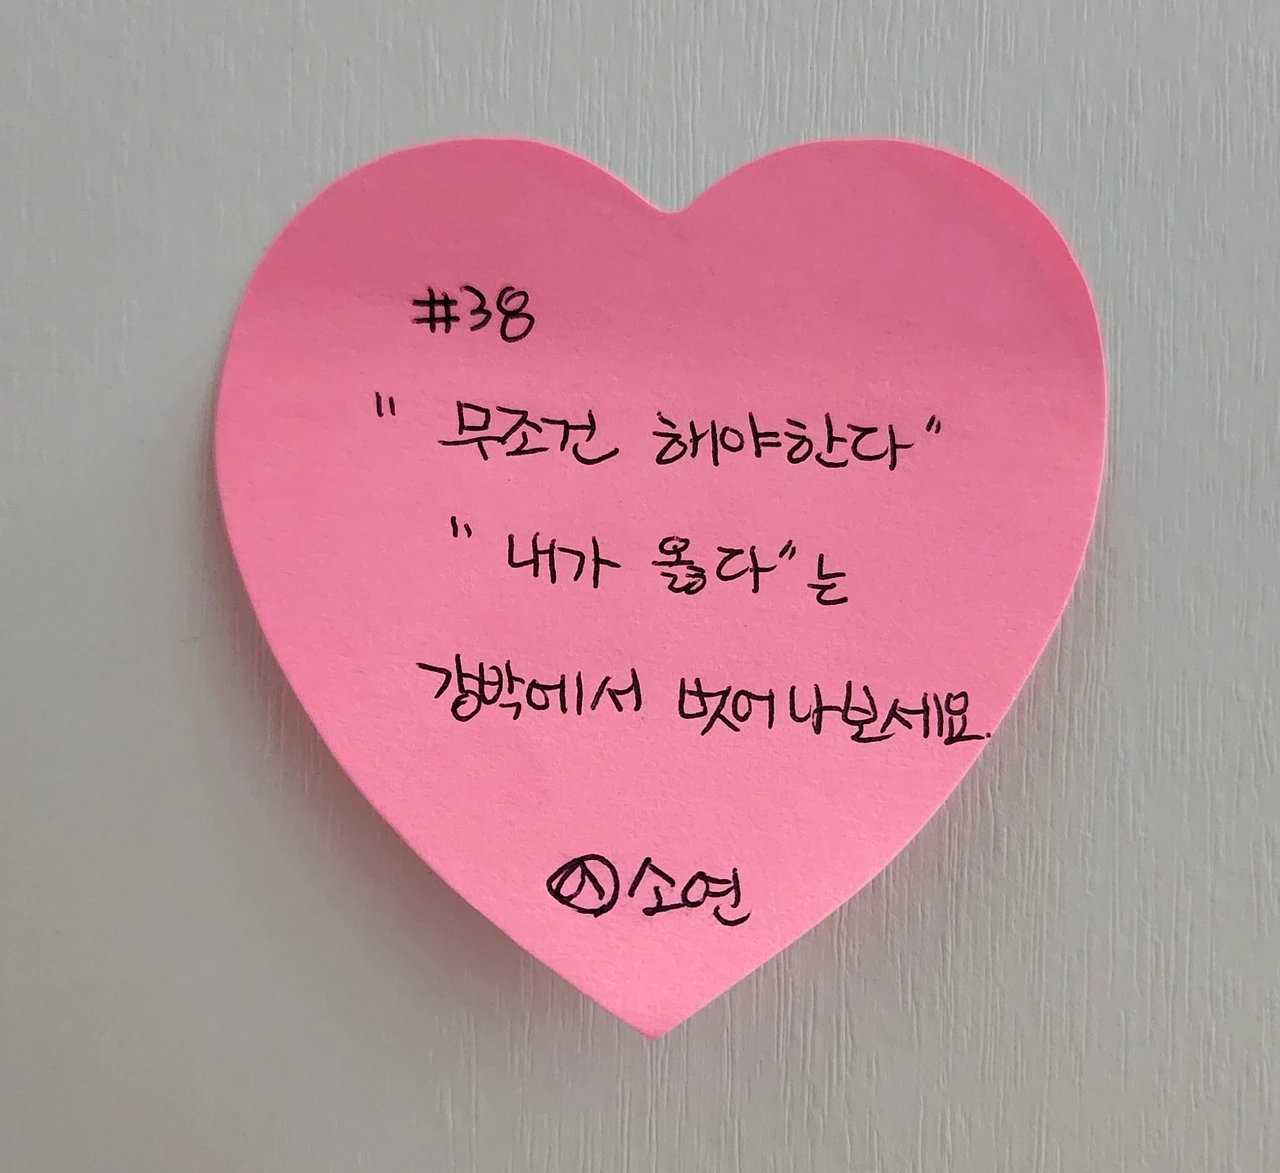 #38
" 무조건 해야한다"
" 내가 옳다"는
강박에서 벗어나보세요.
㉦소연